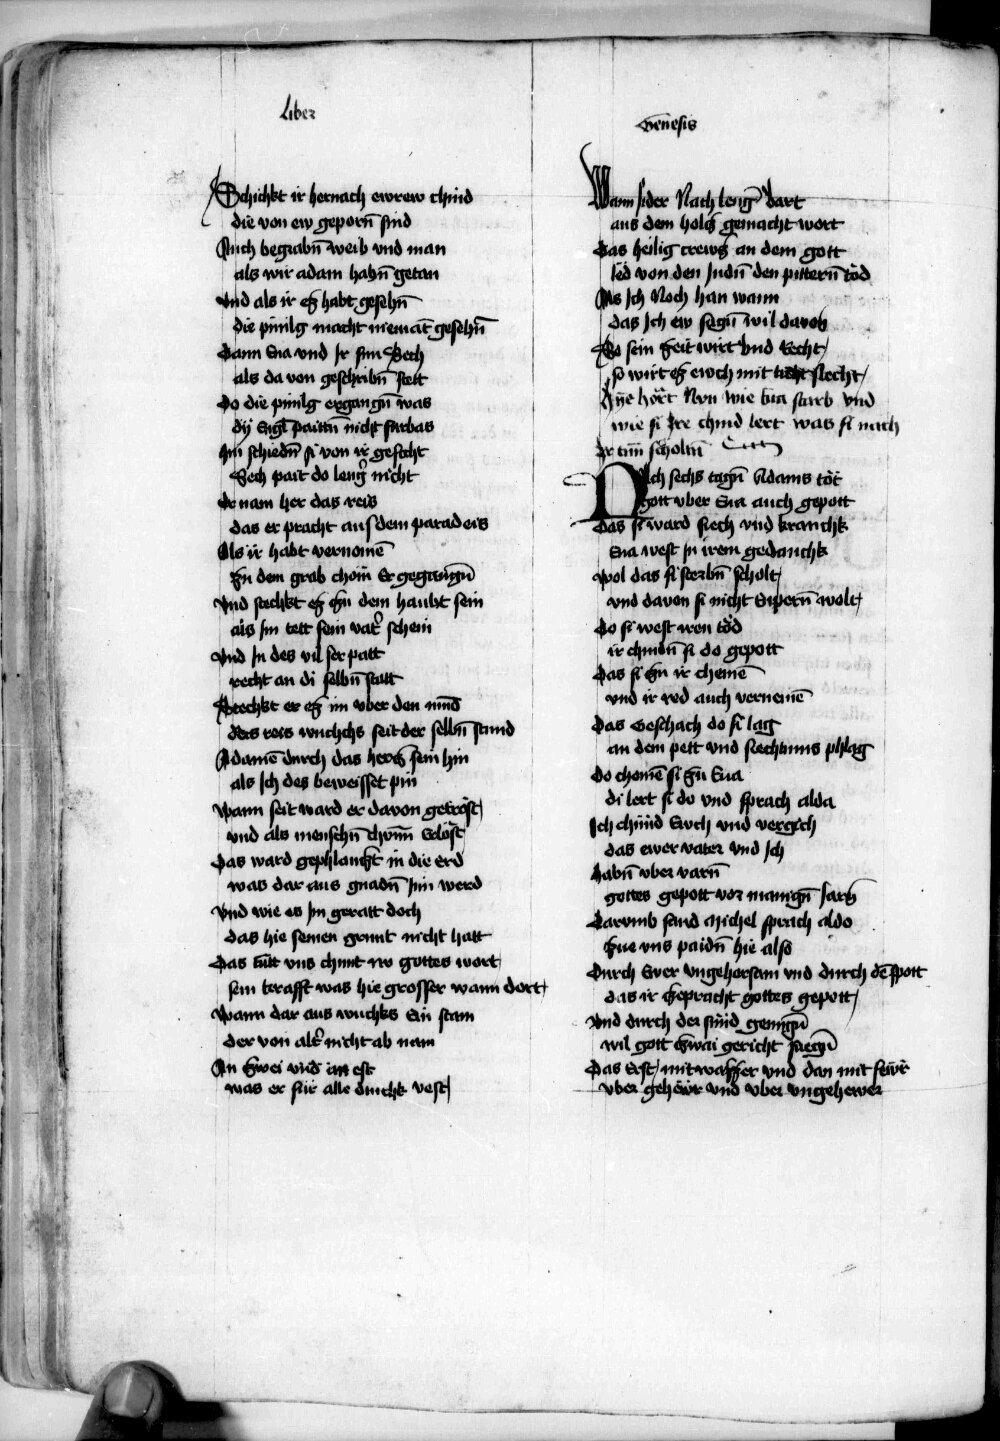 Liber
Genesis
Schichkt ir hernach ewrew chind
die von ew geporn̄ sind
Auch begrabn̄ weib vnd man
als wir adam habn̄ getan
Vnd als ir eß habt gesehn̄
die pinilg macht niemāt gesehn̄
Dann Eua vnd Ir sun Sech
als da von geschribn̄ stett
Do die pinilg ergangn̄ was
dy Engl paittn̄ nicht furbas
Im schiedn̄ si von ir gesicht
Sech pait do leng̉ nicht
Er nam her das reis
das er pracht aus dem paradeis
Als ir habt vernomē
Zu dem grab chom Er gegangn̄
Vnd stechkt eß zu dem haubt sein
als im tett sein vat̉ schein
Vnd in des vil ser patt
recht an di selbn̄ statt
Stechkt er eß im vber den mūd
des reis wuchs seit der selbn̄ stund
Adamē durch das hercz sein hin
als Ich des beweisset pin
Wann seit ward er davon getröst
vnd als menschn̄ chunn̄ Erlöst
Das ward gephlanczt in die erd
was dar aus gnadn̄ im werd
Vnd wie es im geratt doch
das hie semen grunt nicht hatt
Das tutt vns chunt no gottes wort
sein craft was hie grosser wann dort
Wann dar aus wuchs Ein stam
der von alt̉ nicht ab nam
An zwei vnd an est
was er für alle dinchk vest
Wann sider Nach leng̉ dart
aus dem holcz gemacht wort
Das heilig crewcz an dem gott
led von den Judn̄ den pittern̄ tod
Als Ich Noch han wann
das Ich ew sagn̄ wil davon
So sein zeit wirt vnd Recht
so wirt eß ewch mit slecht
Aye hört Nvn wie Eua starb vnd
wie si Ire chind lert was si nach
Ir tun̄ scholtn̄
Nach sechs tagn̄ Adams töt
gott vber Eua auch gepott
Das si ward siech vnd kranchk
Eua west in irem gedanchk
Wol das si sterbn̄ scholt
vnd davon si nicht Empern̄ wolt
Do si west iren töd
ir chindn̄ si do gepott
Das si zu ir chemē
vnd ir red auch vernemē
Das Geschach do si lag
an dem pett vnd siechtums phlag
Do chomē si zu Eua
di lert si do vnd sprach alda
Ich chünd Euch vnd vergich
das ewer vater vnd Ich
Habn̄ vber varn̄
gottes gepott vor manign̄ Jarn̄
Darvmb sand Michel sprach aldo
Zue vns paidn̄ hie also
Durch Ewer vngehorsam vnd durch dē spott
das ir zepracht gottes gepott
Vnd durch der sünd genugn̄
wil gott zwai gericht
Das Erst mit wasser vnd dan mit fewr
vber gehewr vnd vber vngehewer